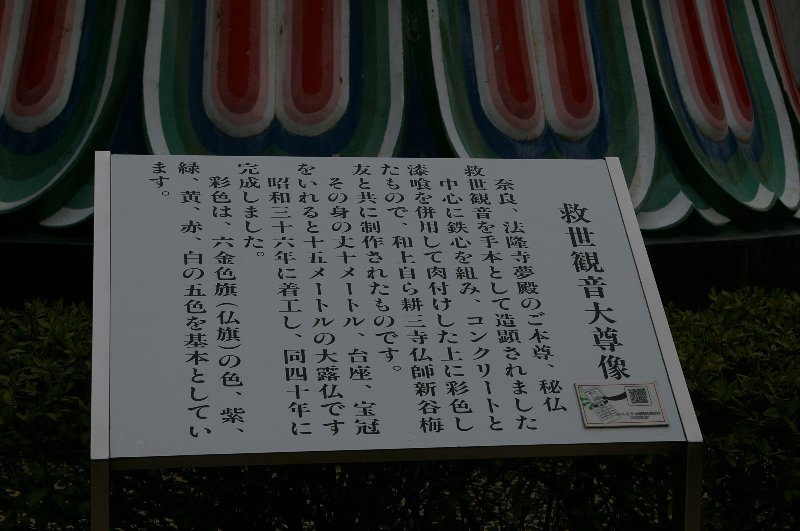 救世観音大尊像
奈良、法隆寺夢殿のご本尊、秘仏
救世観音を手本として造顕されました
中心に鉄心を組み、コンクリートと
漆喰を併用して肉付けした上に彩色し
たもので、和上自ら耕三寺仏師新谷梅
友と共に制作されたものです。
その身の丈十メートル、台座、宝冠
をいれると十五メートルの大露仏です
昭和三十六年に着工し、同四十年に
完成しました。
彩色は、六金色旗(仏旗)の色、紫、
緑、黄、赤、白の五色を基本としてい
ます。